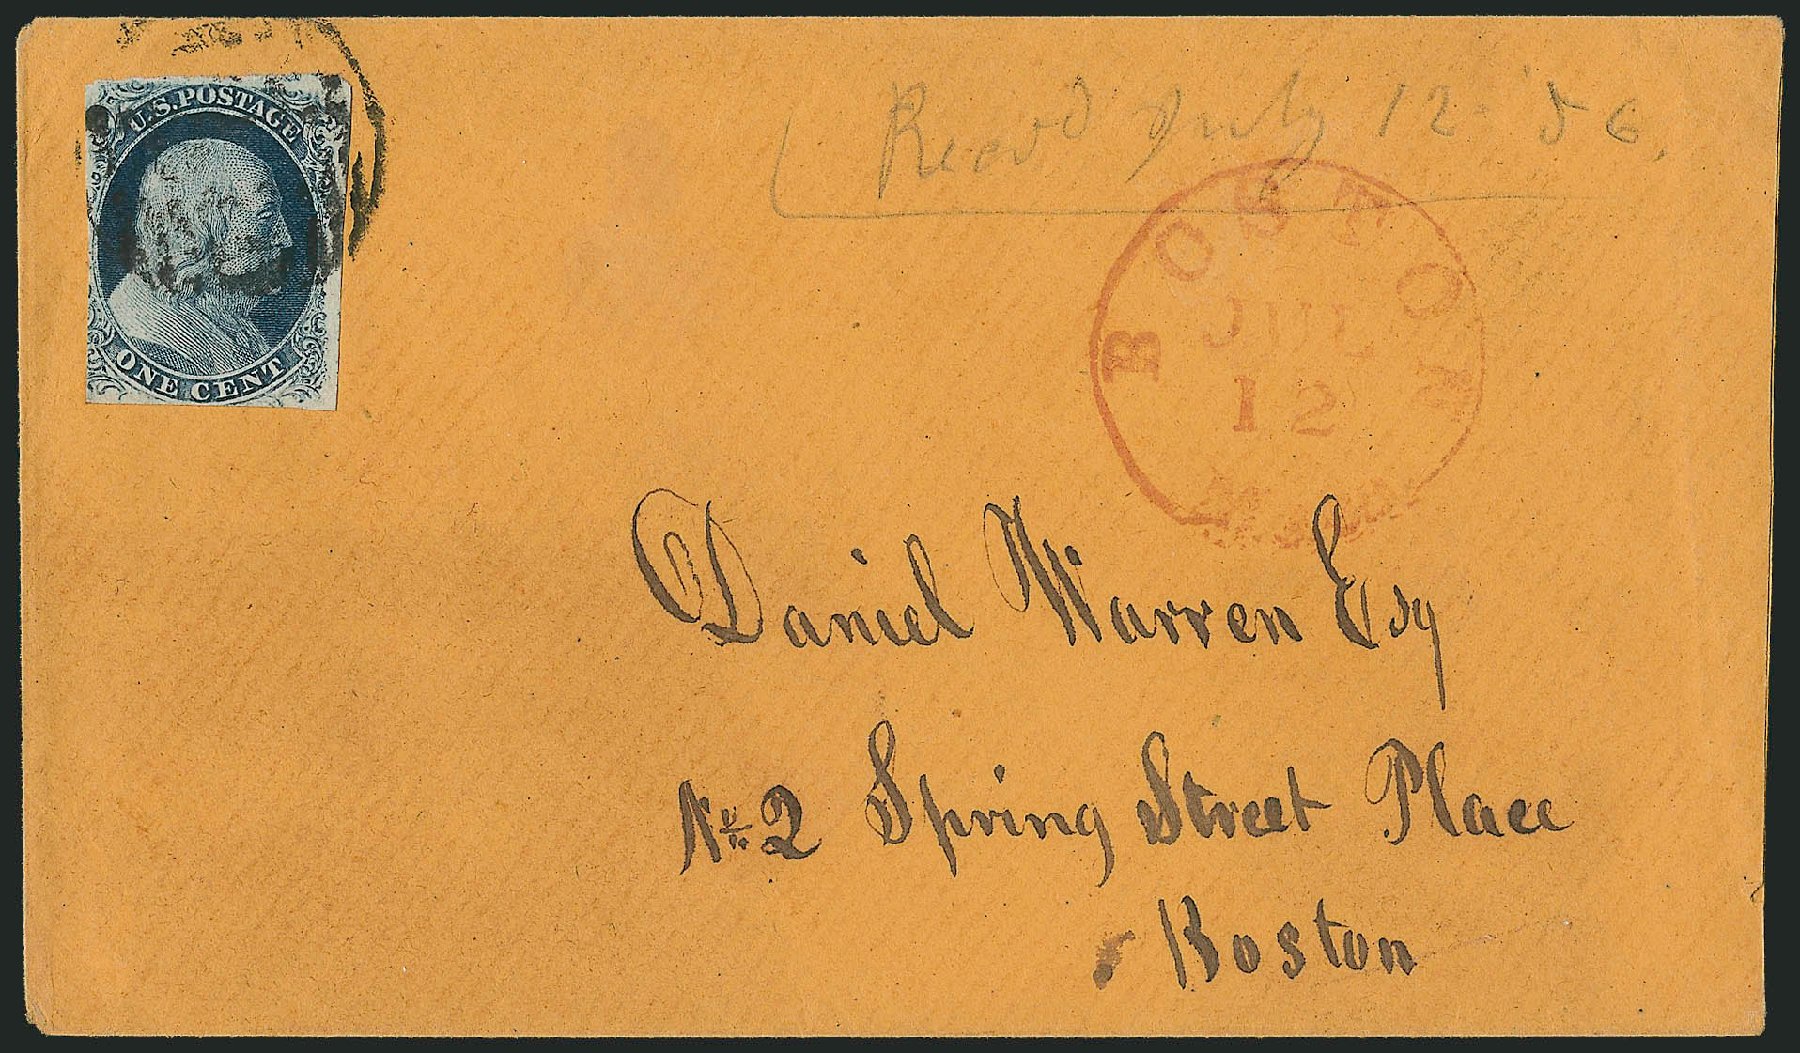 U.S. POSTAGE
ONE CENT
Recd July 12 '56.
BOSTON
JUL
12
Daniel Warren Esq
No 2 Spring Street Place
Boston